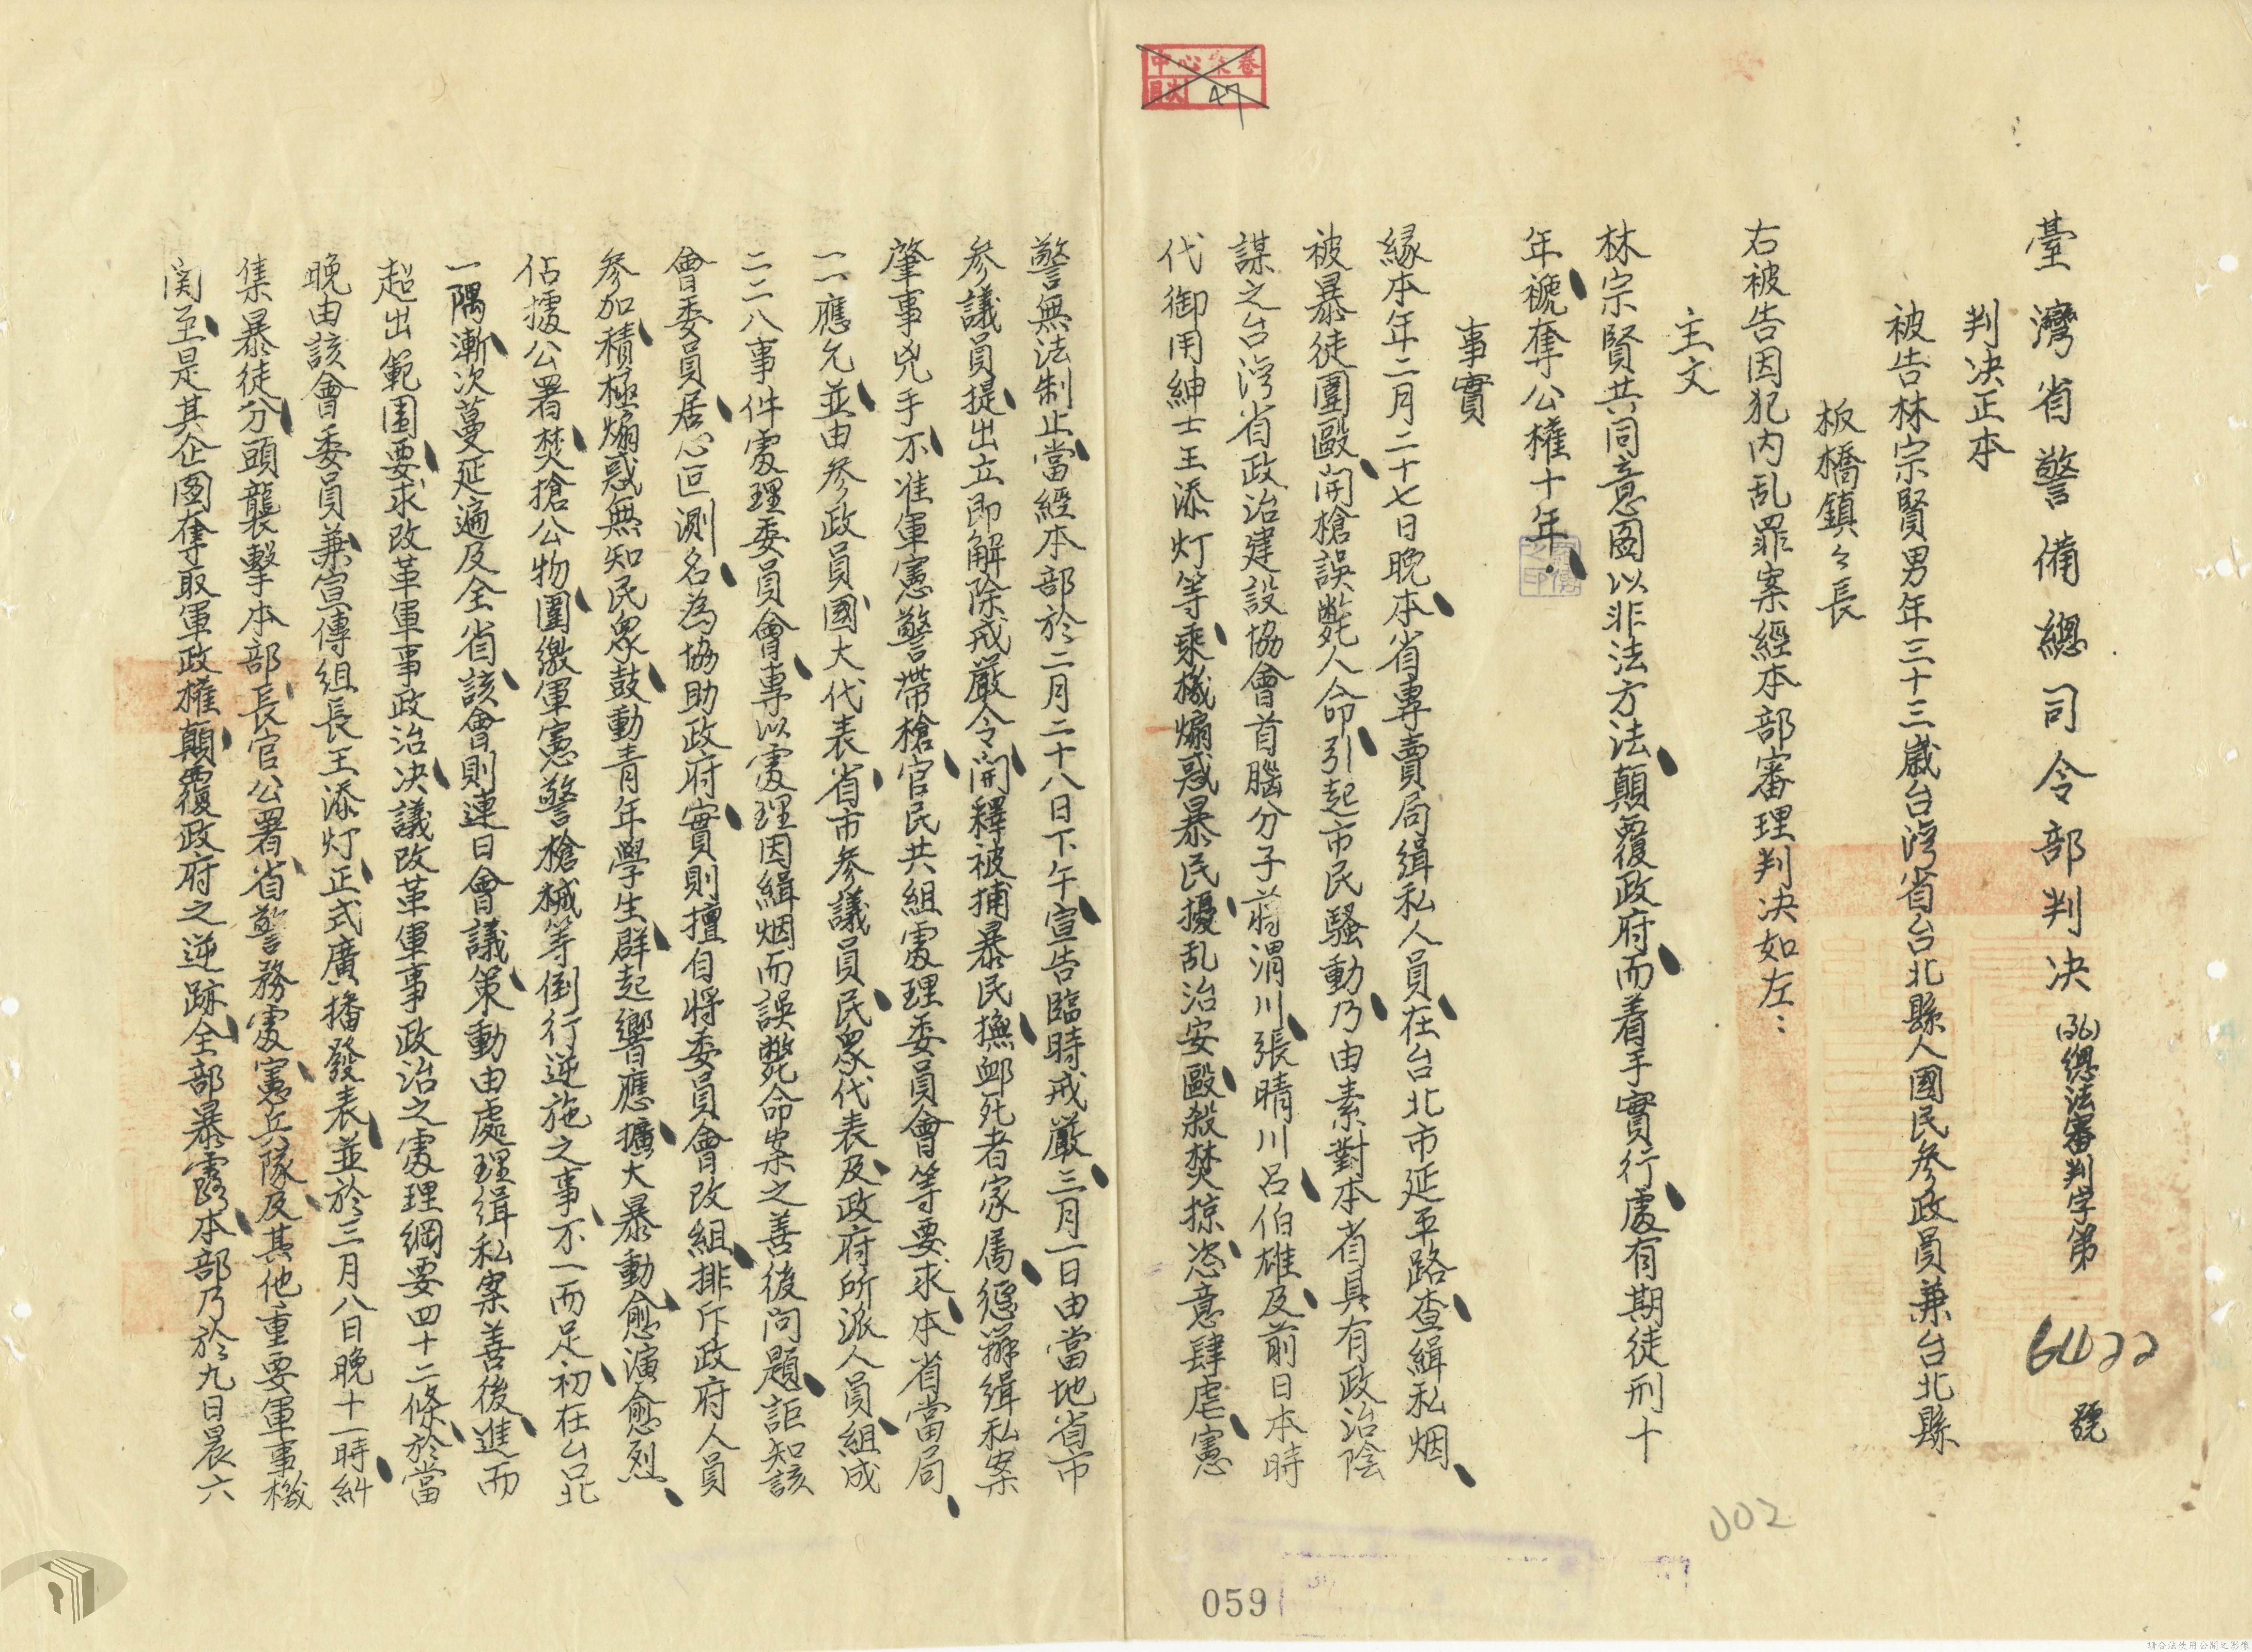 臺灣省警備總司令部判决(36)總法審判字第6422號
判决正本
被告林宗賢男年三十三歲台灣省台北縣人國民參政員兼台北縣
板橋鎮々長
右被告因犯内乱罪案經本部審理判决如左：
主文
林宗賢共同意图以非法方法、顛覆政府、而着手實行、處有期徒刑十
年、褫奪公權十年、。
事實
緣本年二月二十七日晚、本省專賣局緝私人員、在台北市延平路、查緝私烟、
被暴徒圍毆、開槍誤斃人命、引起市民騷動、乃由素對本省具有政治陰
謀之台灣省政治建設協會首腦分子蔣渭川、張晴川、呂伯雄、及前日本時
代御用紳士王添灯等、乘機煽惑暴民、擾乱治安、毆殺焚掠、恣意肆虐、憲
警無法制止、當經本部於二月二十八日下午、宣告臨時戒嚴、三月一日由當地省市
參議員、提出立即解除戒嚴令、開釋被捕暴民、撫卹死者家属、懲辦緝私案
肇事兇手、不准軍憲警帶槍、官民共組處理委員會等要求、本省當局、
一一應允、並由參政員、國大代表、省市參議員、民衆代表、及政府所派人員、組成
二二八事件處理委員會、專以處理因緝烟而誤斃命案之善後问題、詎知該
會委員、居心叵測、名為協助政府、實則擅自將委員會改組、排斥政府人員
參加、積極煽惑無知民衆、鼓動青年學生、群起響應、擴大暴動、愈演愈烈、
佔據公署、焚搶公物、圍繳軍憲警槍械等倒行逆施之事、不一而足、初在台北
一隅、漸次蔓延遍及全省、該會則連日會議、策動由處理緝私案善後、進而
超出範圍、要求改革軍事政治、决議改革軍事政治之處理綱要四十二條、於當
晚由該會委員、兼宣傳組長王添灯、正式廣播發表、並於三月八日晚十一時、糾
集暴徒、分頭襲擊本部、長官公署、省警務處、憲兵隊、及其他重要軍事機
関、至是其企图奪取軍政權、顛覆政府之逆跡、全部暴露、本部乃於九日晨六
中心案卷
頁次
47
002
059
請合法使用公開之影像